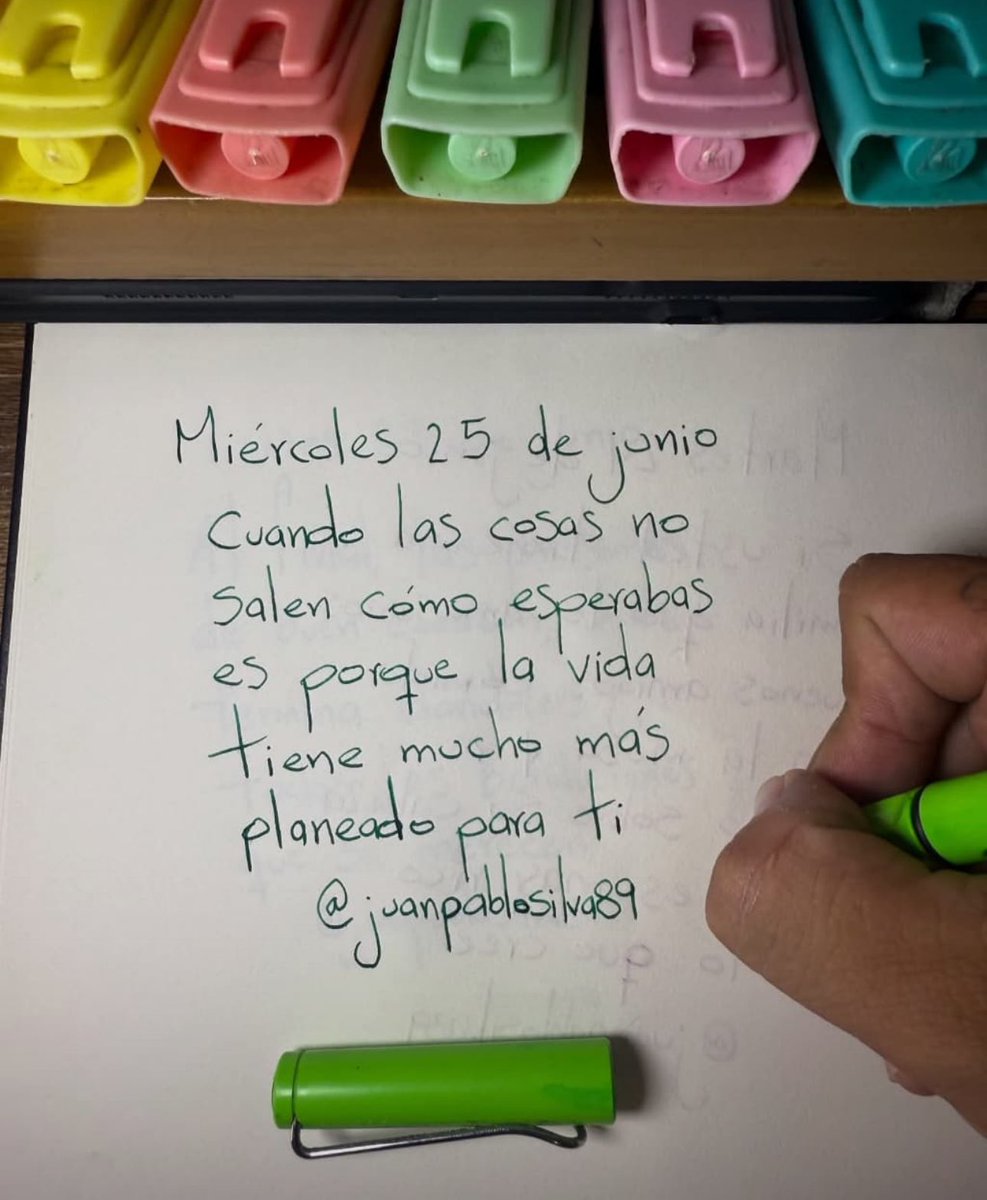 Miércoles 25 de junio
Cuando las cosas no
salen cómo esperabas
es porque la vida
tiene mucho más
planeado para ti
@juanpablosilva89